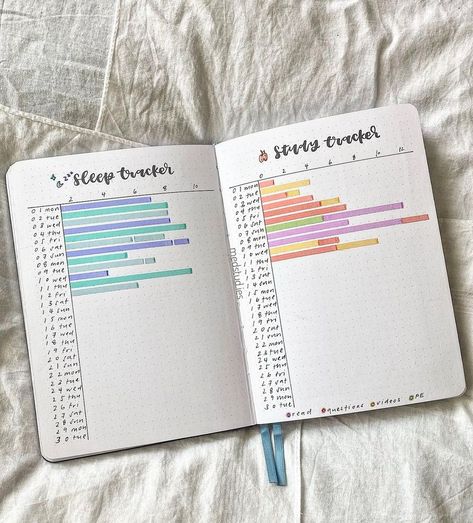 sleep tracker
2 4 6 8 10
01 mon
02 tue
03 wed
04 thu
05 fri
06 sat
07 sun
08 mon
09 tue
10 wed
11 thu
12 fri
13 sat
14 sun
15 mon
16 tue
17 wed
18 thu
19 fri
20 sat
21 sun
22 mon
23 tue
24 wed
25 thu
26 fri
27 sat
28 sun
29 mon
30 tue
medstudies_
study tracker
0 2 4 6 8 10 12
01 mon
02 tue
03 wed
04 thu
05 fri
06 sat
07 sun
08 mon
09 tue
10 wed
11 thu
12 fri
13 sat
14 sun
15 mon
16 tue
17 wed
18 thu
19 fri
20 sat
21 sun
22 mon
23 tue
24 wed
25 thu
26 fri
27 sat
28 sun
29 mon
30 tue
read questions videos PE